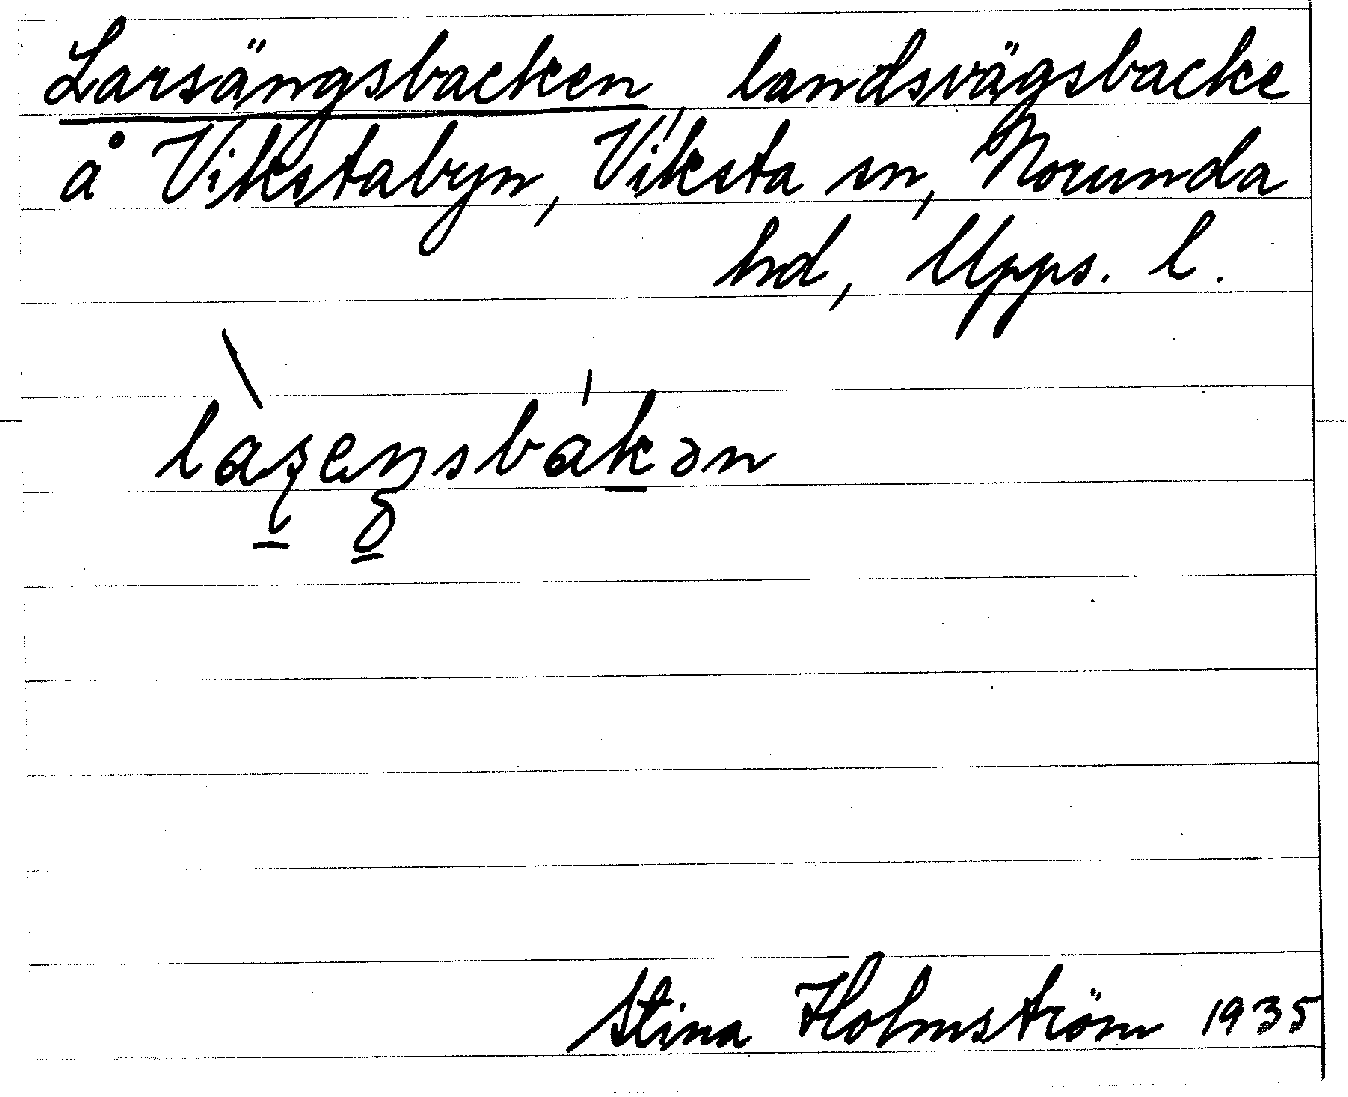 Larsängsbacken, landsvägsbacke
å Vikstabyn, Viksta sn, Norunda
hd, Upps. l.
Stina Holmström 1935